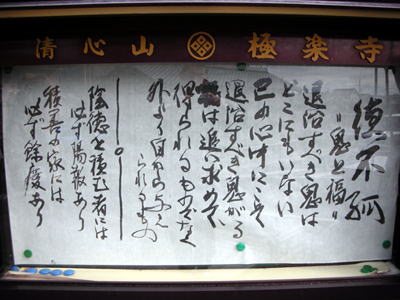 清心山 極楽寺
徳不孤
"鬼と福"
退治すべき鬼は
どこにもいない
己の心中にこそ
退治すべき鬼がゐる
福は追い求めて
得られるものでなく
外より自から与え
られるもの
陰徳を積む者には
必ず陽報あり
積善の家には
必ず餘慶あり